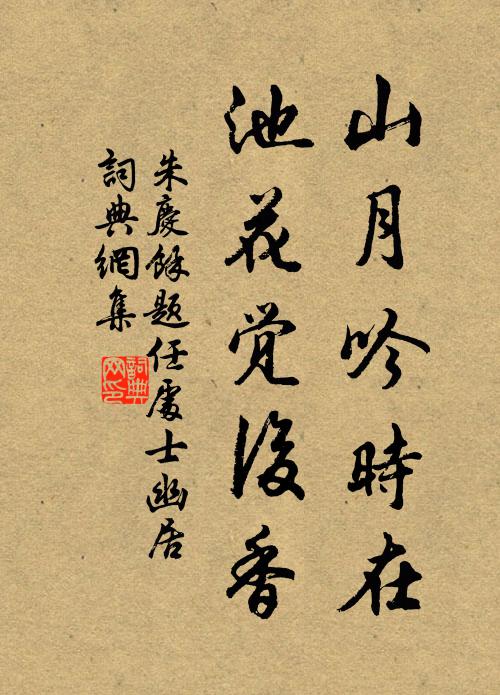 山月吟時在
池花觉後香
朱慶餘題任處士幽居
詞典網集
詞典
网印